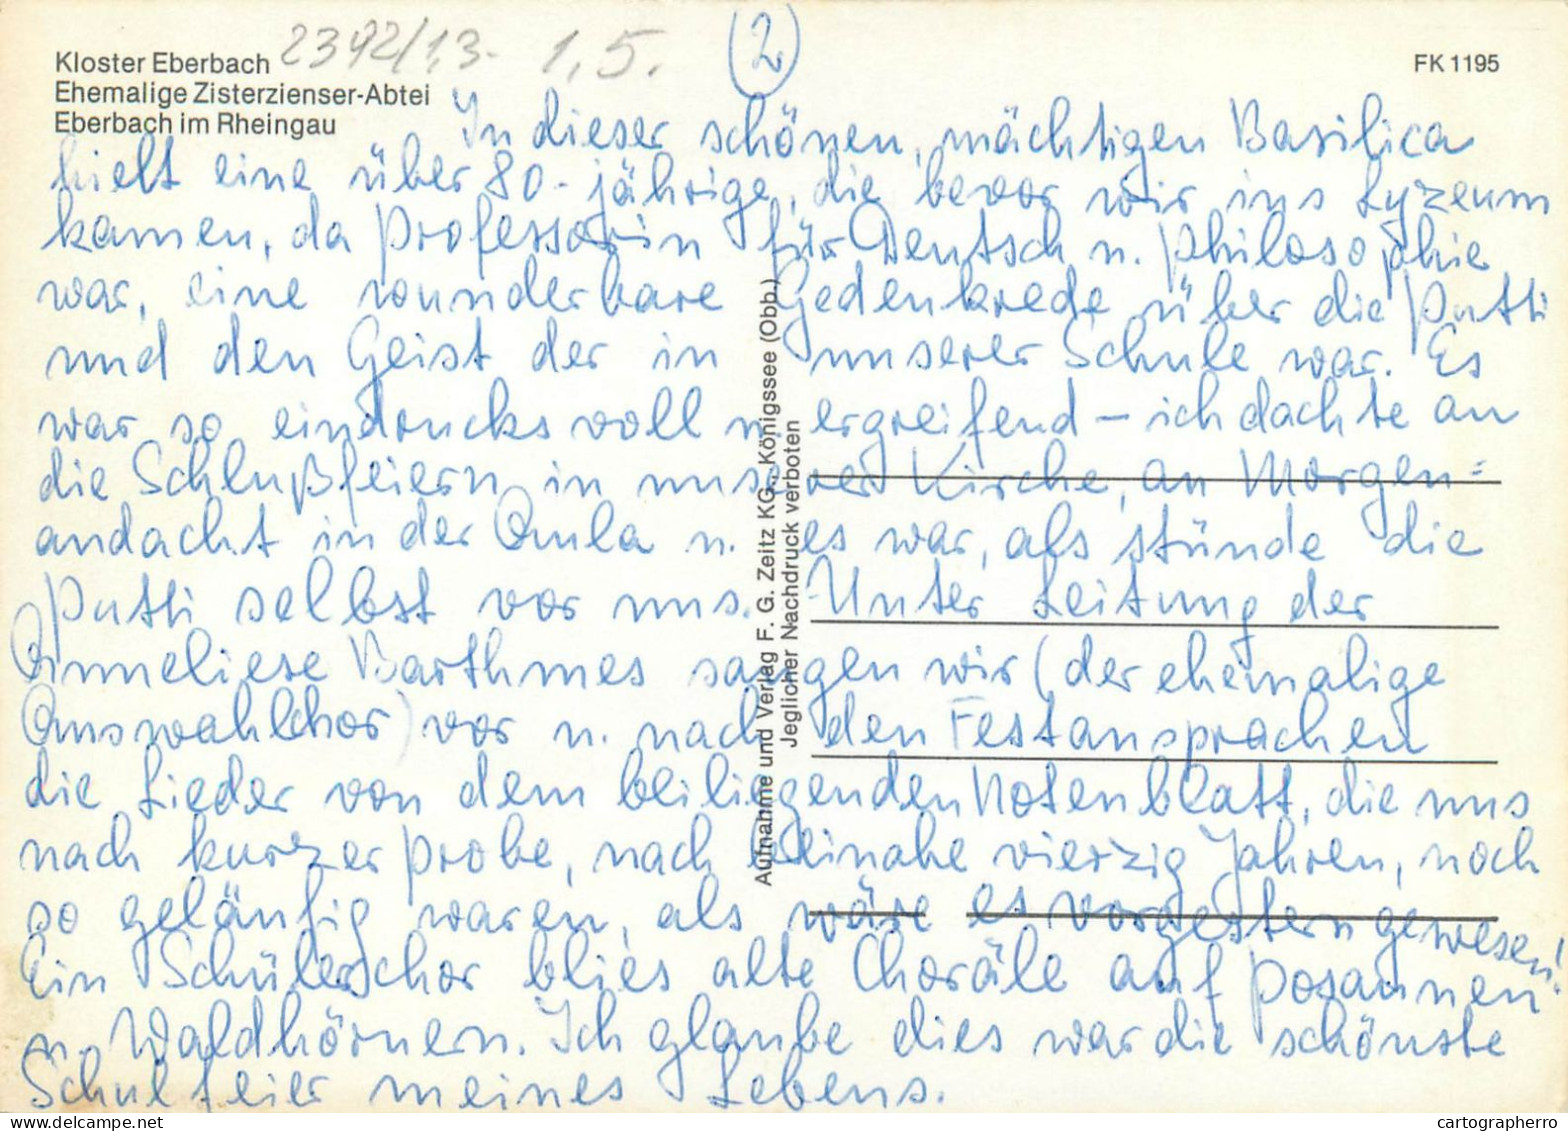 Kloster Eberbach 2392/1,3- 1,5. 2 FK 1195
Ehemalige Zisterzienser-Abtei
Eberbach im Rheingau
In dieser schönen, mächtigen Basilica
hielt eine über 80-jährige, die bevor wir ins Lyzeum
kamen, da Professorin für Deutsch u. Philosophie
war, eine wunderbare Gedenkrede über die Putti
und den Geist der in unserer Schule war. Es
war so eindrucksvoll u. ergreifend – ich dachte an
die Schlußfeiern in unserer Kirche, an Morgen=
andacht in der Aula u. es war, als stünde die
Putti selbst vor uns. Unter Leitung der
Anneliese Barthmes sangen wir (der ehemalige
Auswahlchor) vor u. nach den Festansprachen
die Lieder von dem beiliegenden Notenblatt, die uns
nach kurzer Probe, nach beinahe vierzig Jahren, noch
so geläufig waren, als wäre es vorgestern gewesen!
Ein Schülerchor blies alte Choräle auf Posaunen
u. Waldhörnern. Ich glaube dies war die schönste
Schulfeier meines Lebens.
Aufnahme und Verlag F. G. Zeitz KG., Königssee (Obb.)
Jeglicher Nachdruck verboten
cartographerro